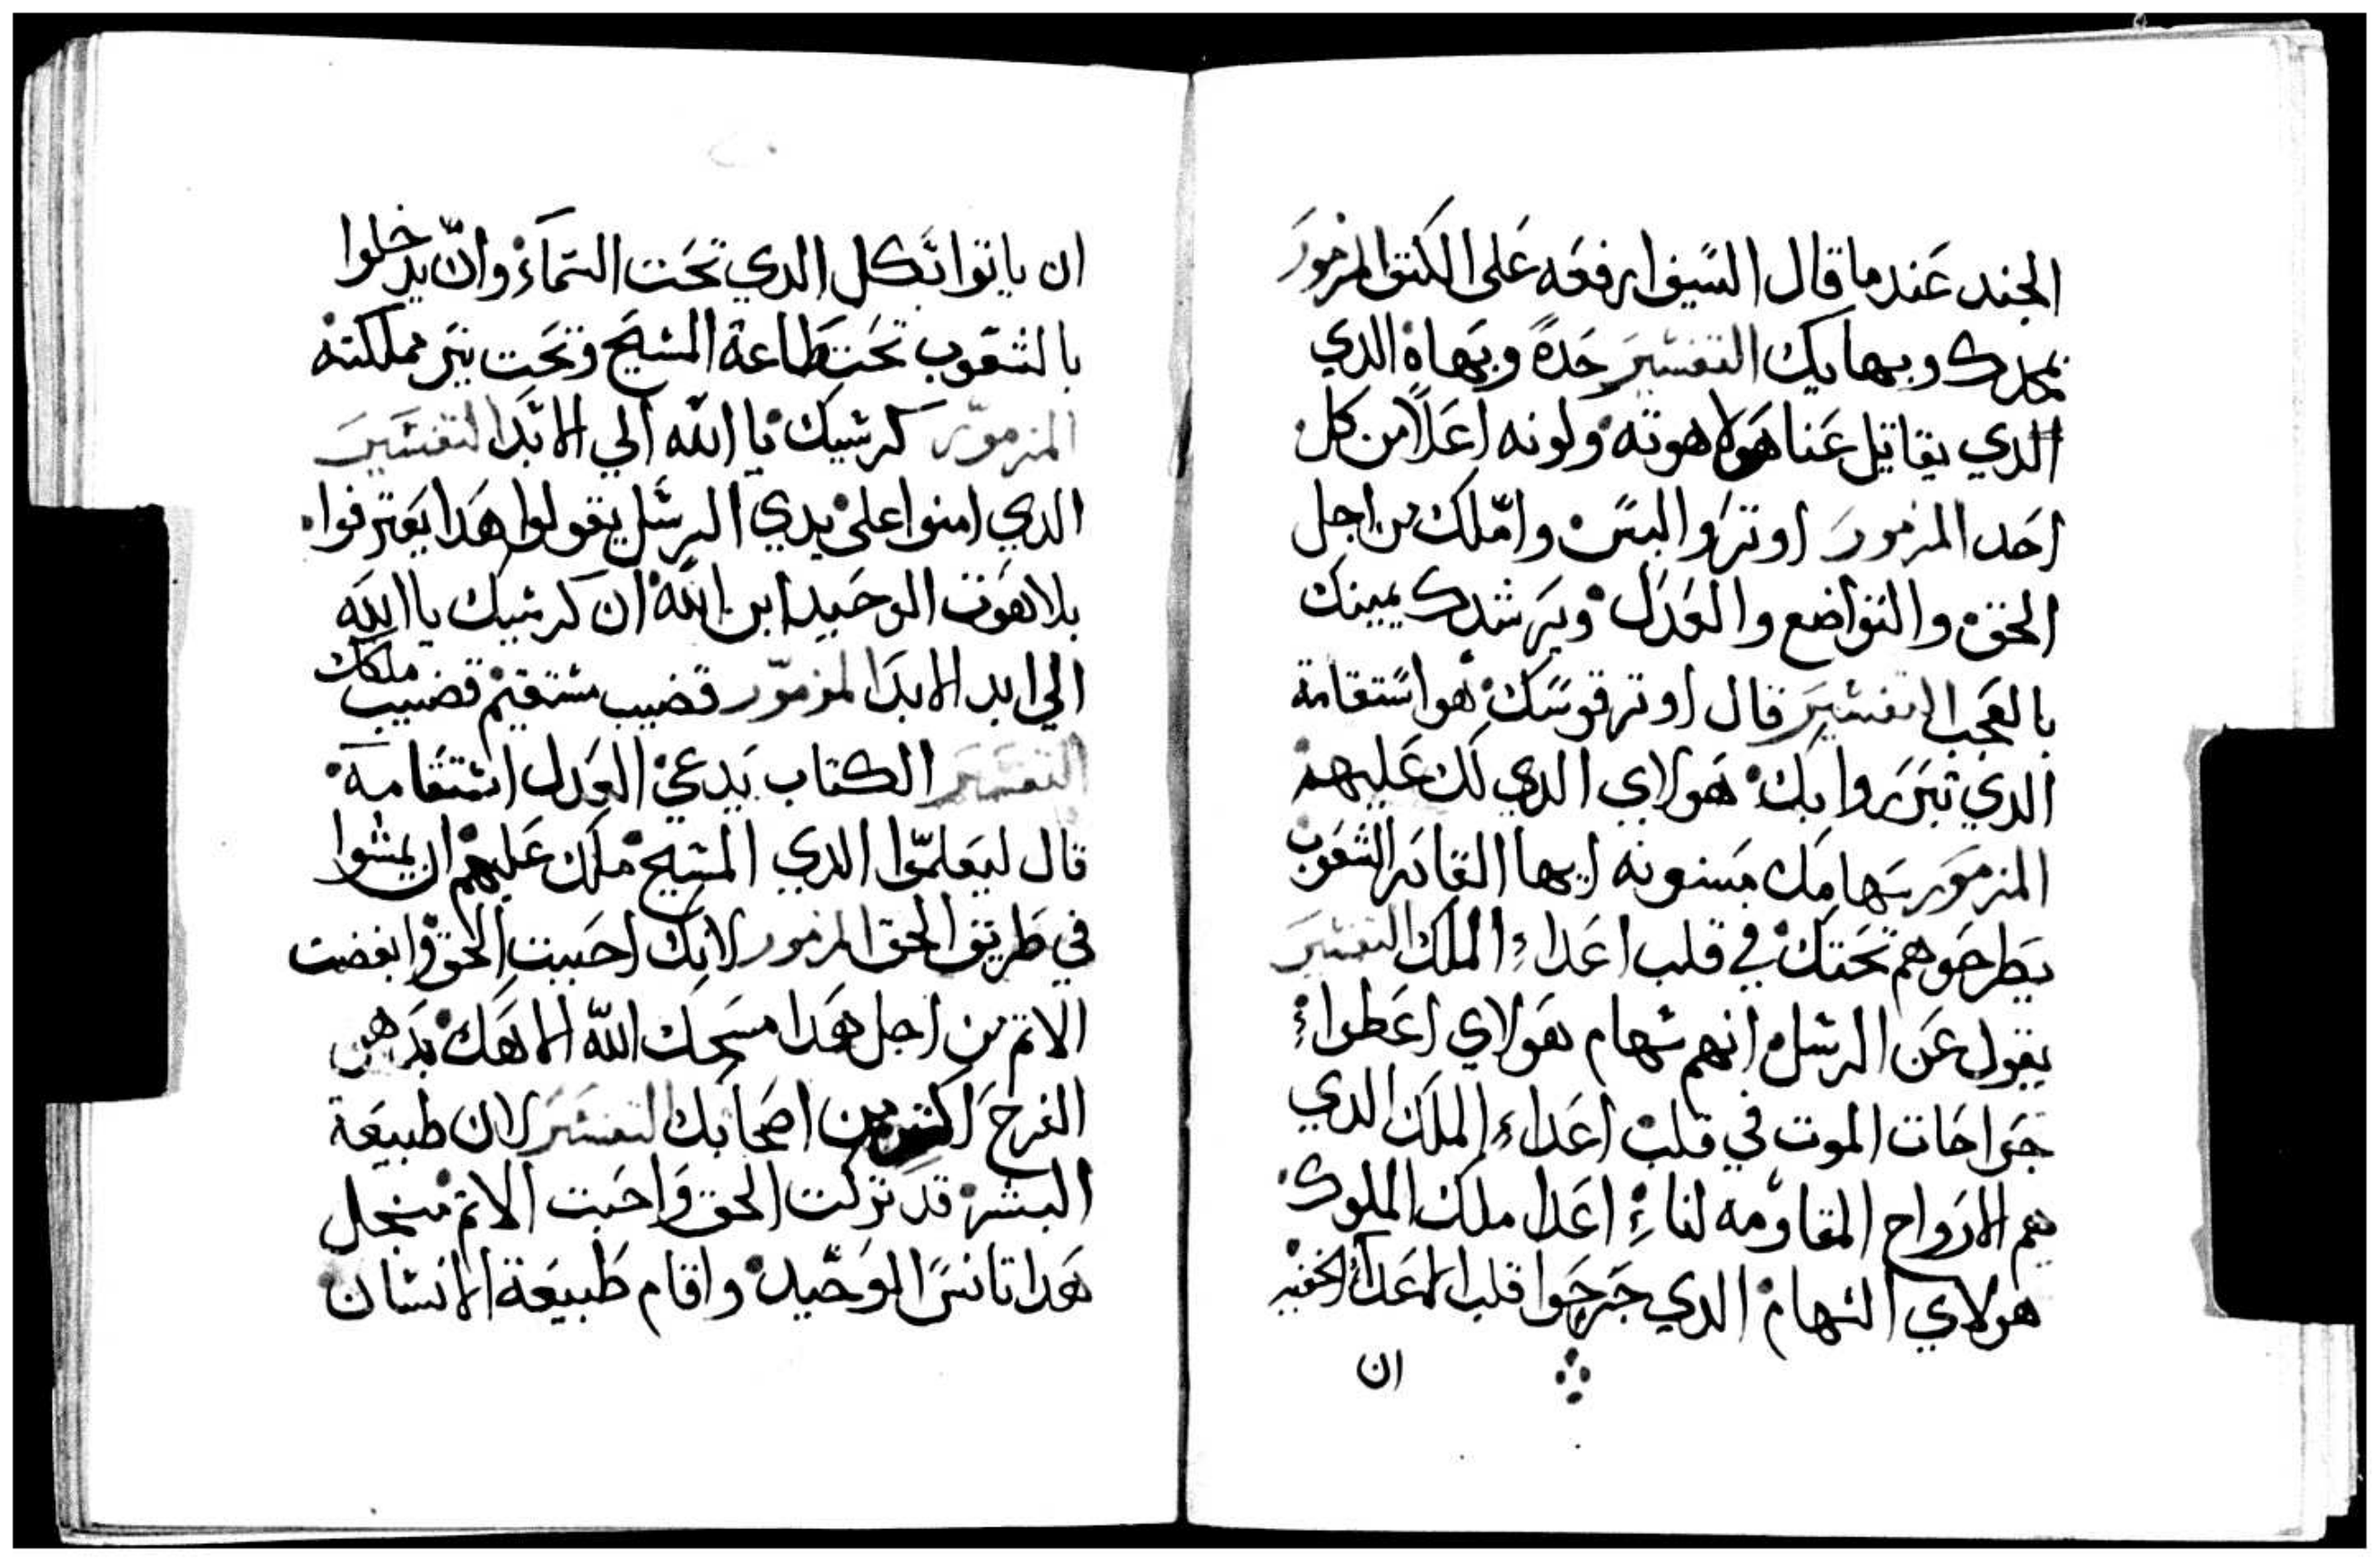 الجند عندما قال السيف ارفعه على الكتف المزمور
بمجدك وبهايك التفسير حدة وبهاه الدي
الدي يقاتل عنا هو لاهوته ولونه اعلا من كل
احد المزمور اوتر والبس واملك من اجل
الحق والتواضع والعدل ويرشدك يمينك
بالعجب التفسير قال اوتر قوسك هو استقامة
الدي تبرروا بك هولاي الدي لك عليهم
المزمور سهامك مسنونه ايها القادر الشعوب
يطرحوهم تحتك في قلب اعداء الملك التفسير
يقول عن الرسل انهم سهام هولاي اعطواء
جراحات الموت في قلب اعداء الملك الدي
هم الارواح المقاومه لناء اعدا ملك الملوك
هولاي السهام الدي جرحوا قلب الاعداء الخفيه
ان
ان ياتوا بكل الدي تحت السماء وان يدخلوا
بالشعوب تحت طاعة المسيح وتحت نير مملكته
المزمور كرسيك يا الله الي الابد التفسير
الدي امنوا على يدي الرسل يقولوا هدا يعترفوا
بلاهوت الوحيد ابن الله ان كرسيك يا الله
الي ابد الابد المزمور قضيب مستقيم قضيب ملكك
التفسير الكتاب يدعي العدل استقامة
قال ليعلموا الدي المسيح ملك عليهم ان يمشوا
في طريق الحق المزمور لانك احببت الحق وابغضت
الاتم من اجل هدا مسحك الله الاهك بدهن
الفرح اكتر من اصحابك التفسير لان طبيعة
البشر قد تركت الحق واحبت الاتم منجل
هدا تانس الوحيد واقام طبيعة الانسان